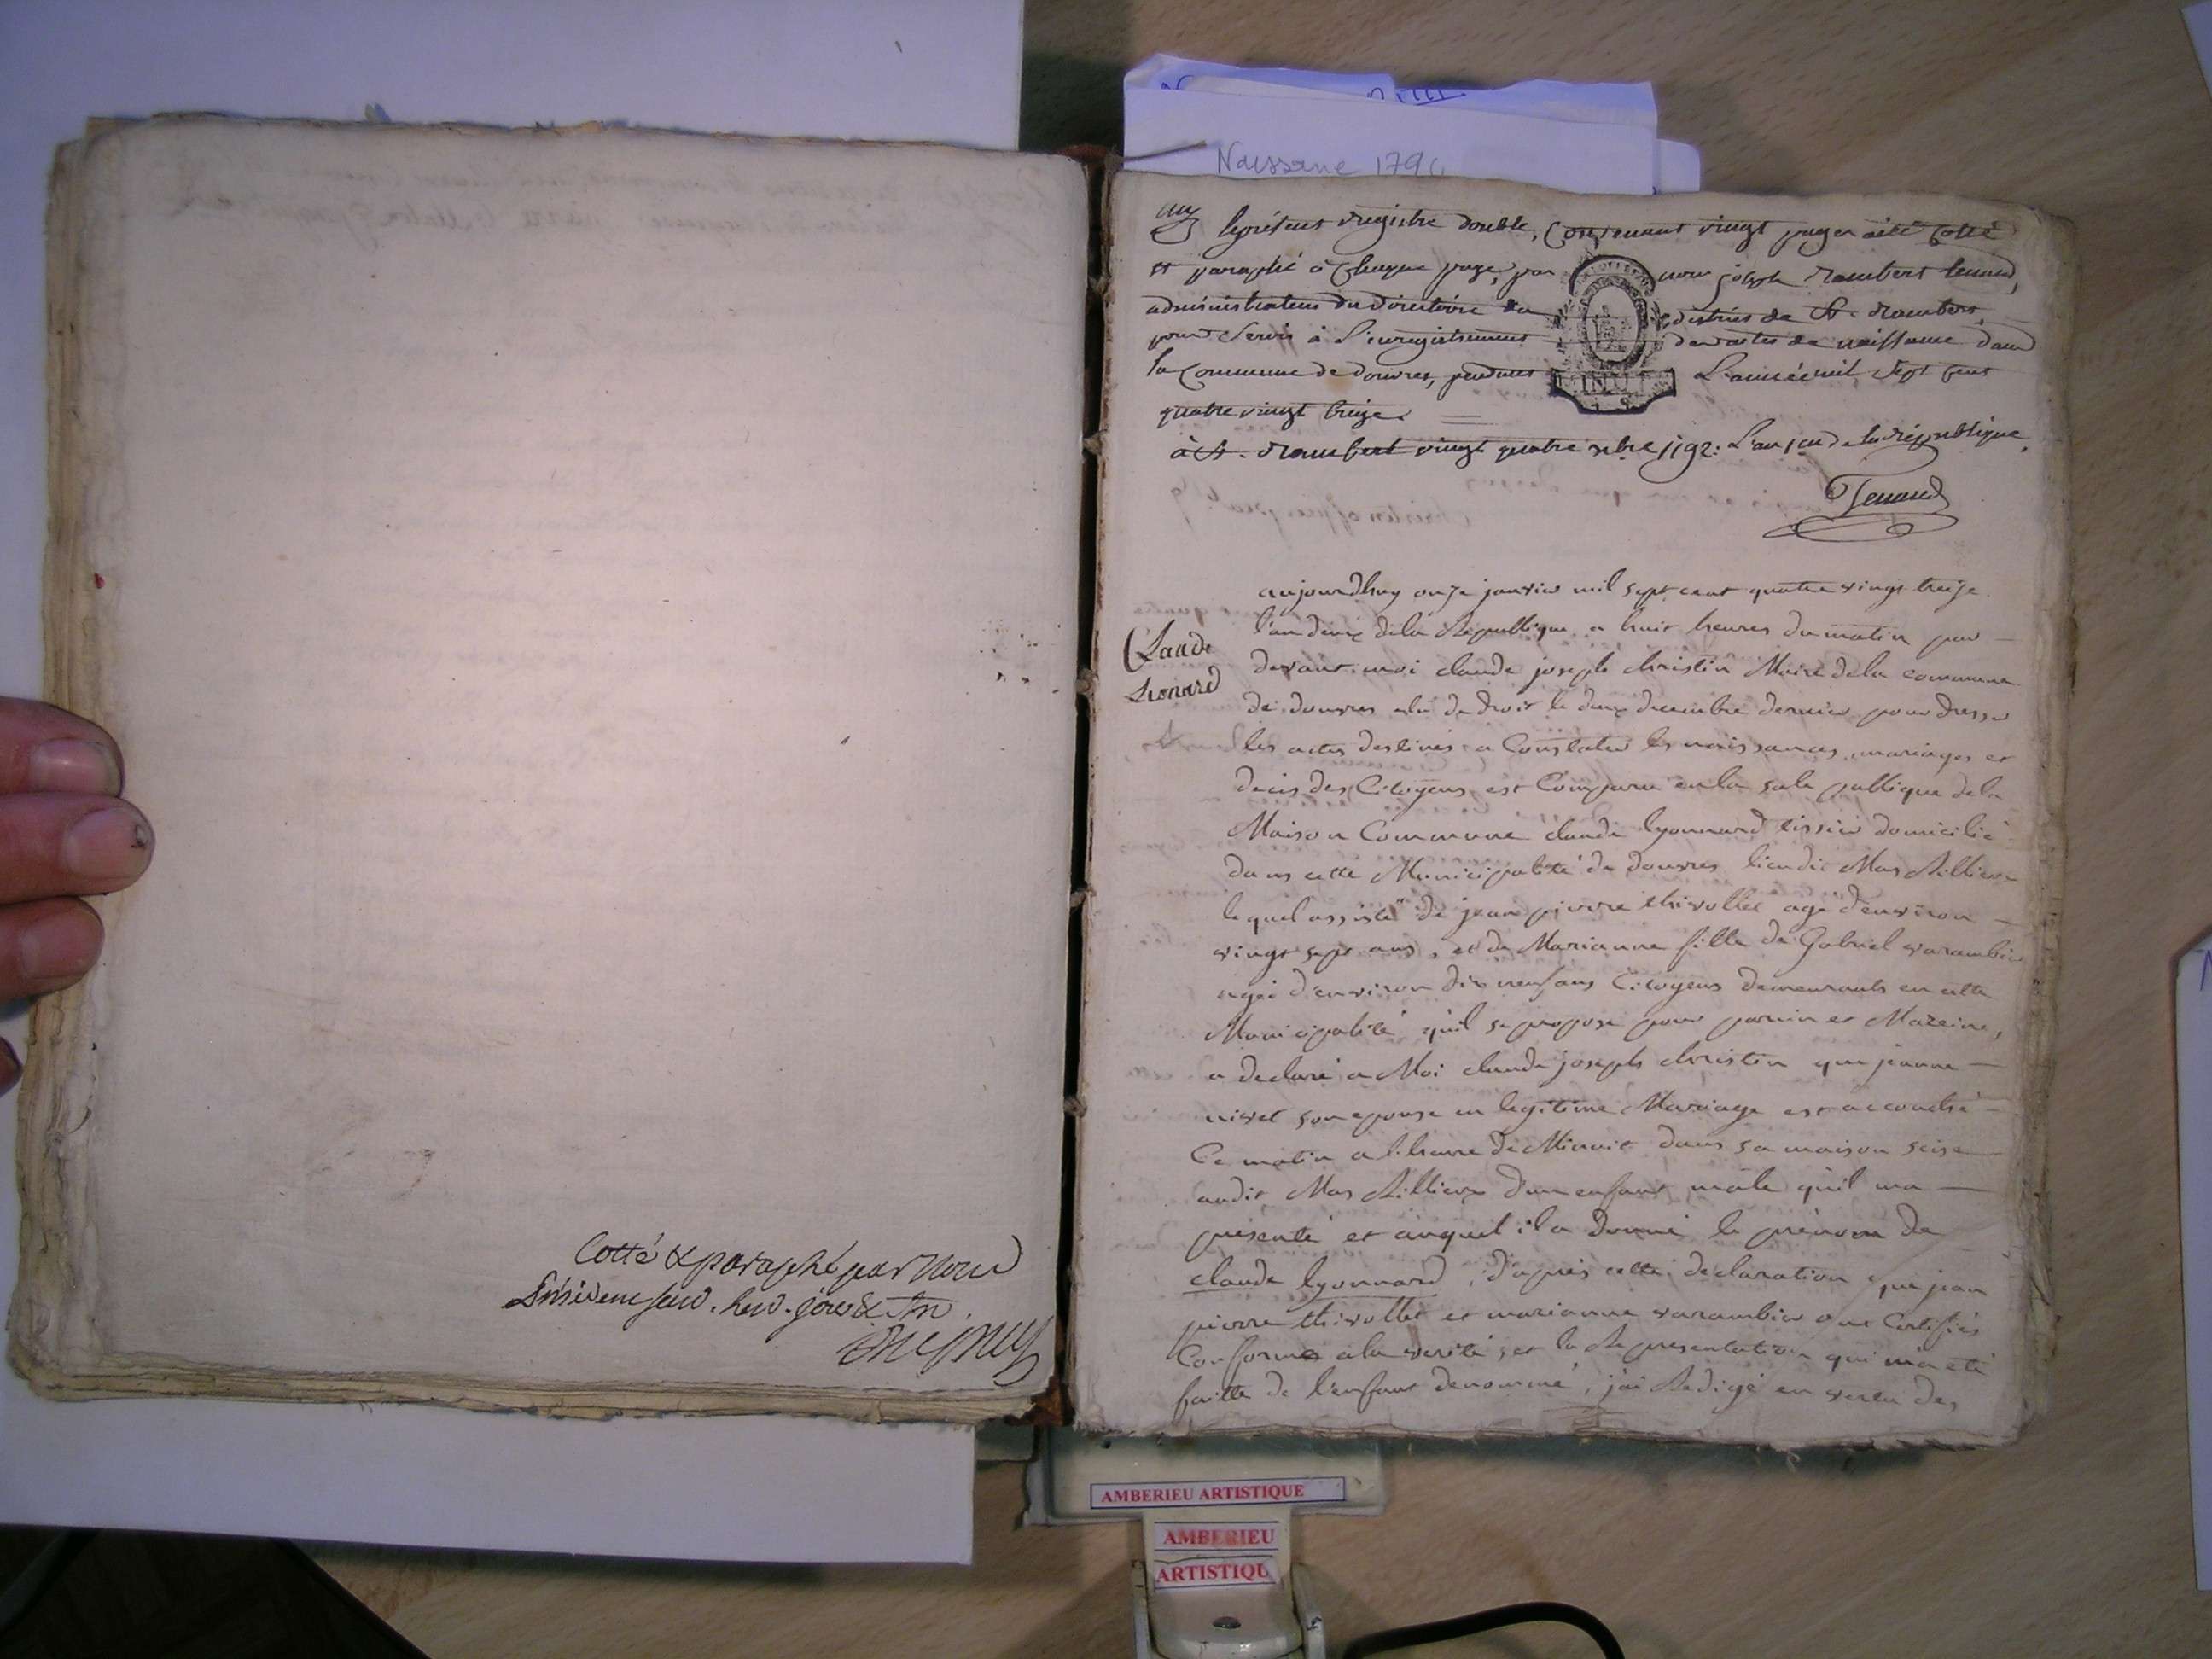 Naissance 179
le présent registre double, Contenant vingt pages a été Cotté
et paraphé à Chaque page, par nous joseph rambert tenand,
administrateur du directoire du district de St. rambert,
pour Servir à L'enregistrement des actes de naissance dans
la Commune de douvres, pendant L'année mil Sept Cent
quatre vingt treize.
à St. rambert vingt quatre xbre 1792. L'an 1er de la république.
Tenand
Claude
Lionard
aujourdhuy onze janvier mil sept cent quatre vingt treize
l'an deux de la Republique a huit heures du matin par
devant moi claude joseph christin Maire de la commune
de douvres elu de droit le deux decembre dernier pour dresser
les actes destinés a Constater les naissances, mariages et
deces des Citoyens est Comparu en la sale publique de la
Maison Commune claude lyonnard tissier domicilié
dans cette Municipalité de douvres lieu dit Mas Rillieux
lequel assisté de jean pierre thivollet agé d'environ
vingt sept ans, et de Marianne fille de Gabriel varambier
agée d'environ dix neuf ans Citoyens demeurants en cette
Municipalité qu'il se propose pour parrin et Mareine,
a declaré a Moi claude joseph christin que jeanne
nivet son epouse en legitime Mariage est accouché
Ce matin a l'heure de Minuit dans sa maison seise
audit Mas Rillieux d'un enfant mâle qu'il m'a
presenté et auquel il a donné le prénom de
claude lyonnard, d'après cette declaration que jean
pierre thivollet et marianne varambier ont Certifiés
Conforme a la verité, et la Representation qui m'a eté
faitte de l'enfant denommé, j'ai Redigé en vertu des
Cotté & paraphé par Nous
AMBERIEU ARTISTIQUE
AMBERIEU
ARTISTIQU